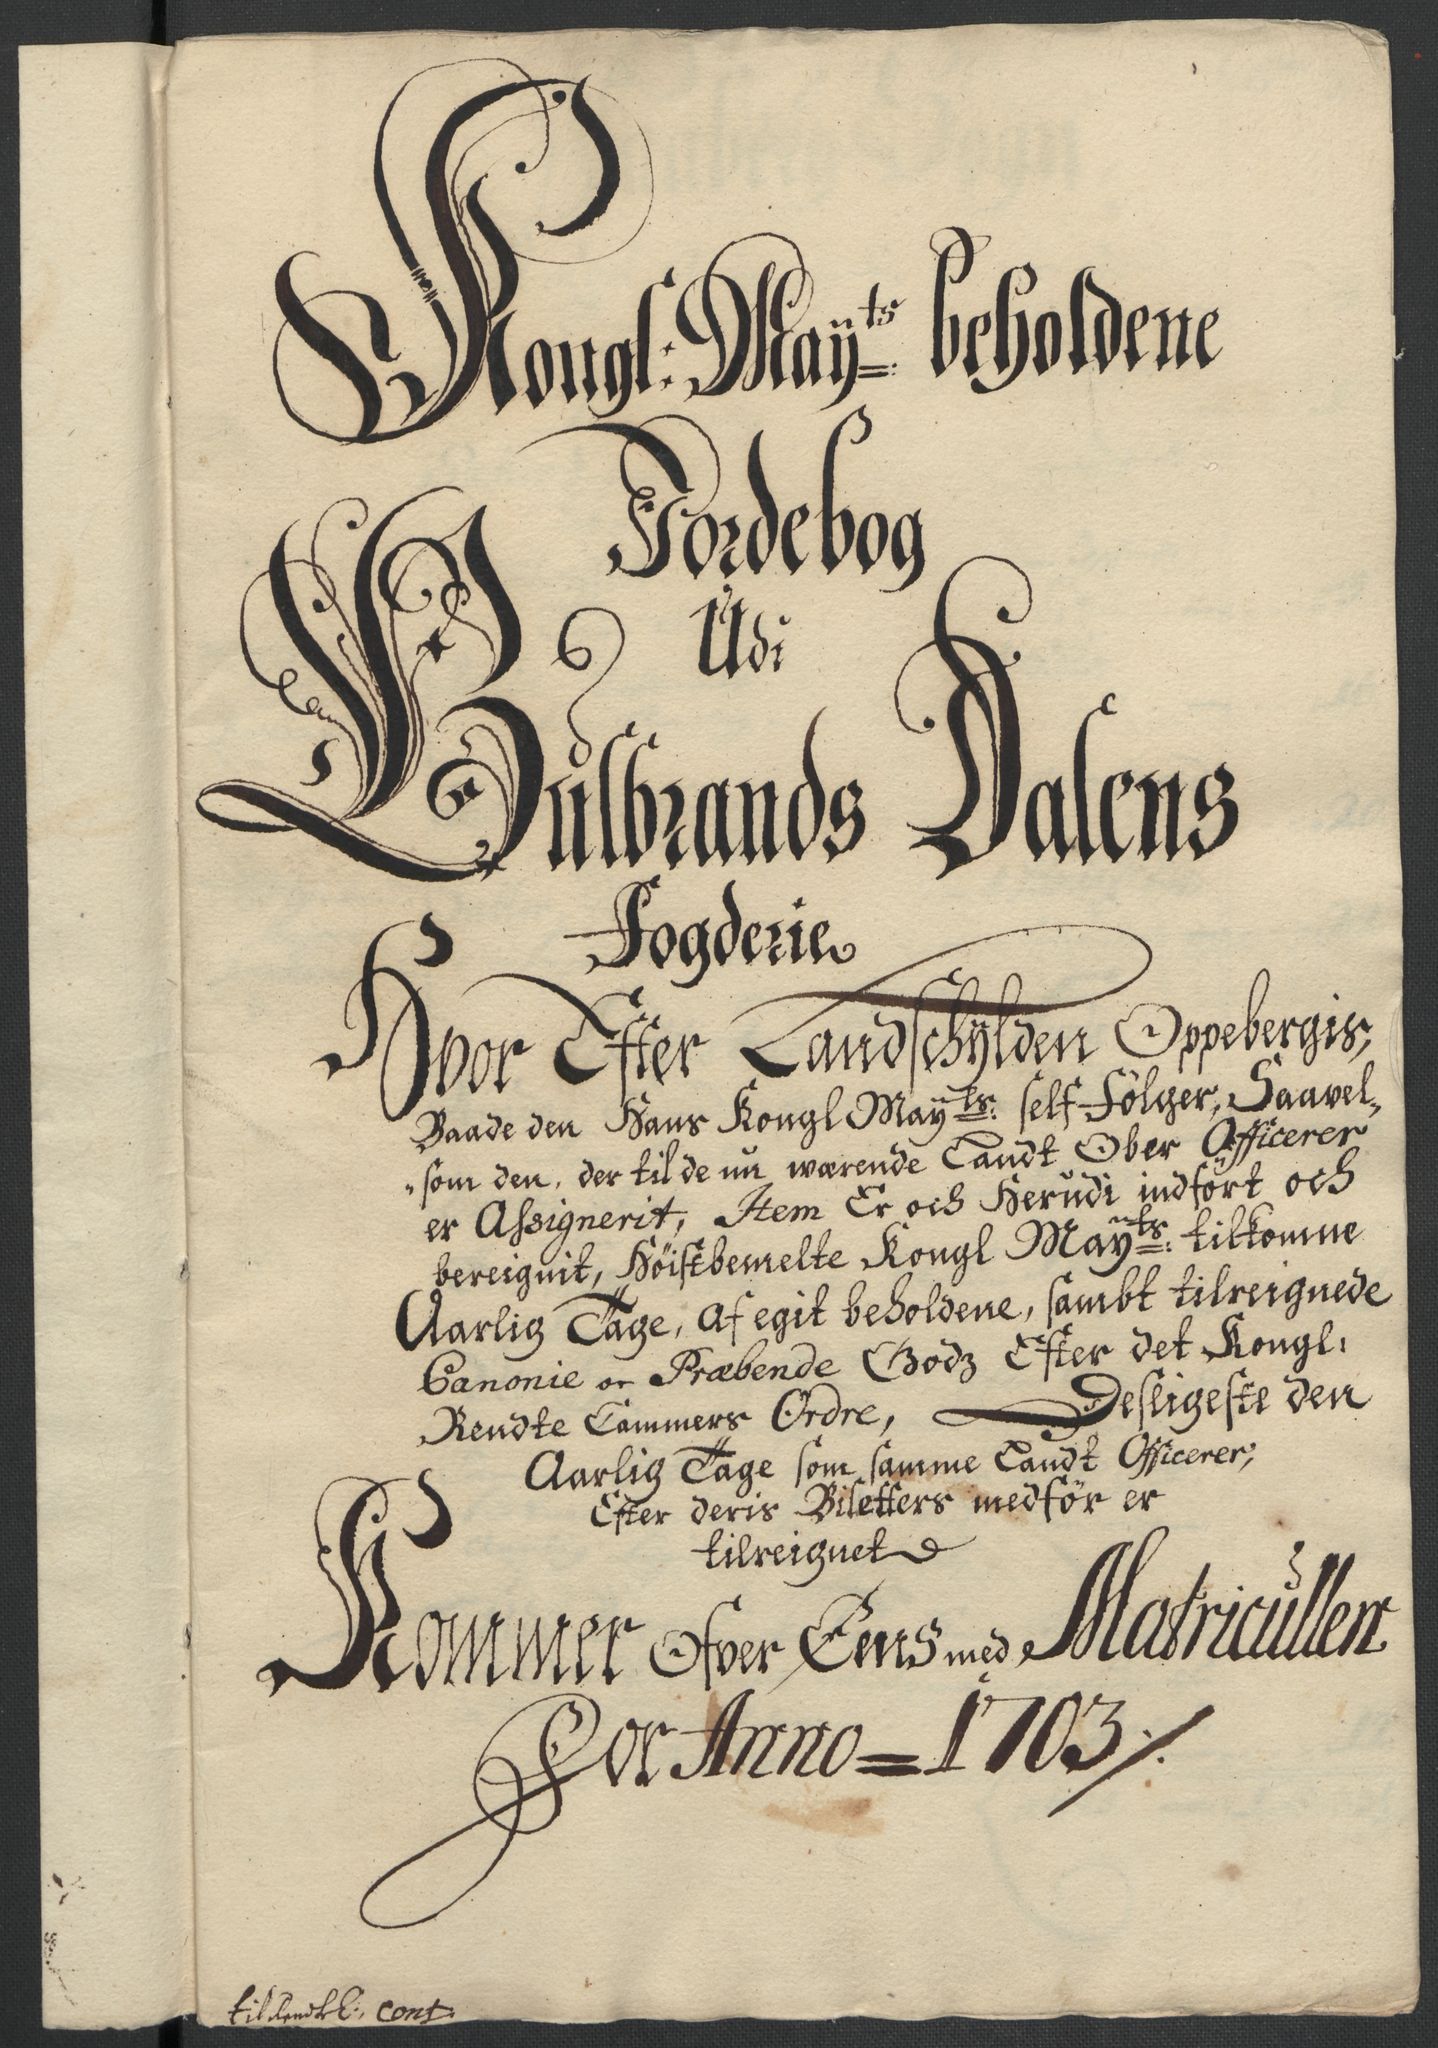 Kongl: Maÿ<sup>ts</sup>: beholdene
Jordebog
Udi
Gulbrands Dalens
Fogderie
Hvor Efter Landschÿlden Oppebergis,
Baade den Hans Kongl Maÿ<sup>ts</sup>: self Fölger, Saavel-
som den, der til de nu wærende Landt Ober Officerer
er Assignerit, Item Er och Herudi indfört och
bereignit, Höistbemelte Kongl Maÿ<sup>ts</sup>: tilkomne
Aarlig Tage, af egit beholdene, sambt tilreignede
Canonie og Præbende Godz Efter det Kongl:
Rendte Cammers Ordre, Desligeste den
Aarlig Tage som samme Landt Officerer,
Efter deris Biletters medför er
tilreignet
Kommer Ofver Eens med Matricullen
For Anno = 1703 /.
til Rendte C: Cont